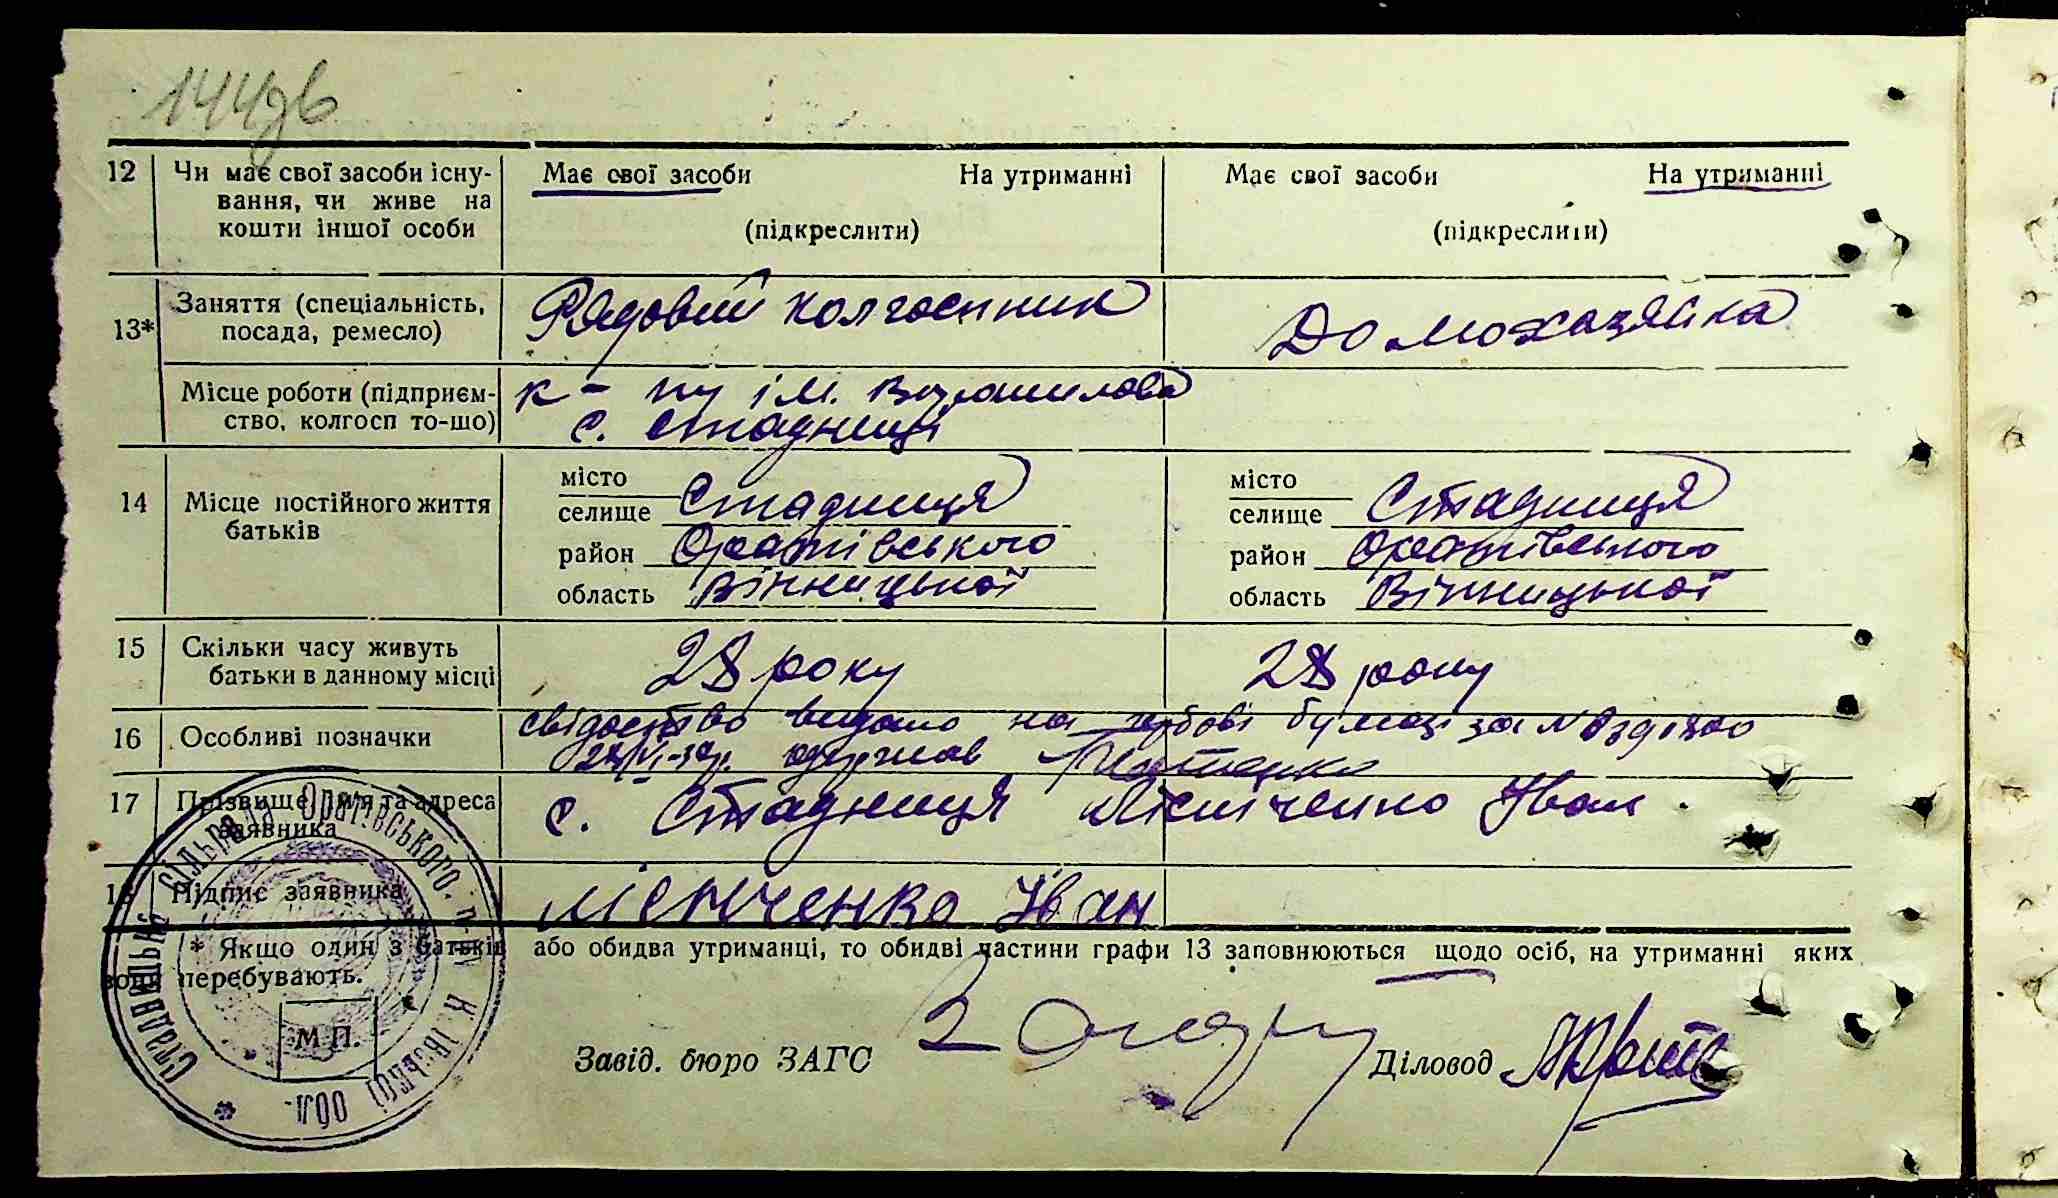 144
12 Чи має свої засоби існу- Має свої засоби На утриманні Має свої засоби На утриманні
вання, чи живе на
кошти іншої особи (підкреслити) (підкреслити)
13* Заняття (спеціальність, Рядовий колгоспник Домохазяйка
посада, ремесло)
Місце роботи (підприєм- к-пу ім. Ворошилова
ство, колгосп то-що) с. Стадниці
14 Місце постійного життя місто місто
батьків селище Стадниця селище Стадниця
район Оратівського район Оратівського
область Вінницької область Вінницької
15 Скільки часу живуть 28 року 28 року
батьки в данному місці
16 Особливі позначки свідоцтво видано на гербові бумазі за №
одержав
17 Прізвище, ім'я та адреса с. Стадниця Іван
заявника
18 Підпис заявника Іван
* Якщо один з батьків або обидва утриманці, то обидві частини графи 13 заповнюються щодо осіб, на утриманні яких
вони перебувають.
М П.
Завід. бюро ЗАГС Діловод
сільрада Оратівського р-ну К. обл.